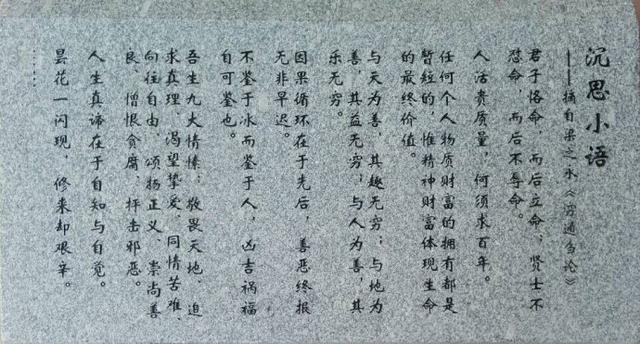 沉思小语
——摘自梁之永《穷通刍论》
君子恪命,而后立命;贤士不
怼命,而后不辱命。
人活贵质量,何须求百年。
任何个人物质财富的拥有都是
暂短的,惟精神财富体现生命
的最终价值。
与天为善,其趣无穷;与地为
善,其益无穷;与人为善,其
乐无穷。
因果循环在于先后,善恶终报
无非早迟。
不鉴于冰而鉴于人,凶吉祸福
自可鉴也。
吾生九大情愫:敬畏天地、追
求真理、渴望挚爱、同情苦难、
向往自由、颂扬正义、崇尚善
良、憎恨贪腐、抨击邪恶。
人生真谛在于自知与自觉。
昙花一闪现,修来却艰辛。
……